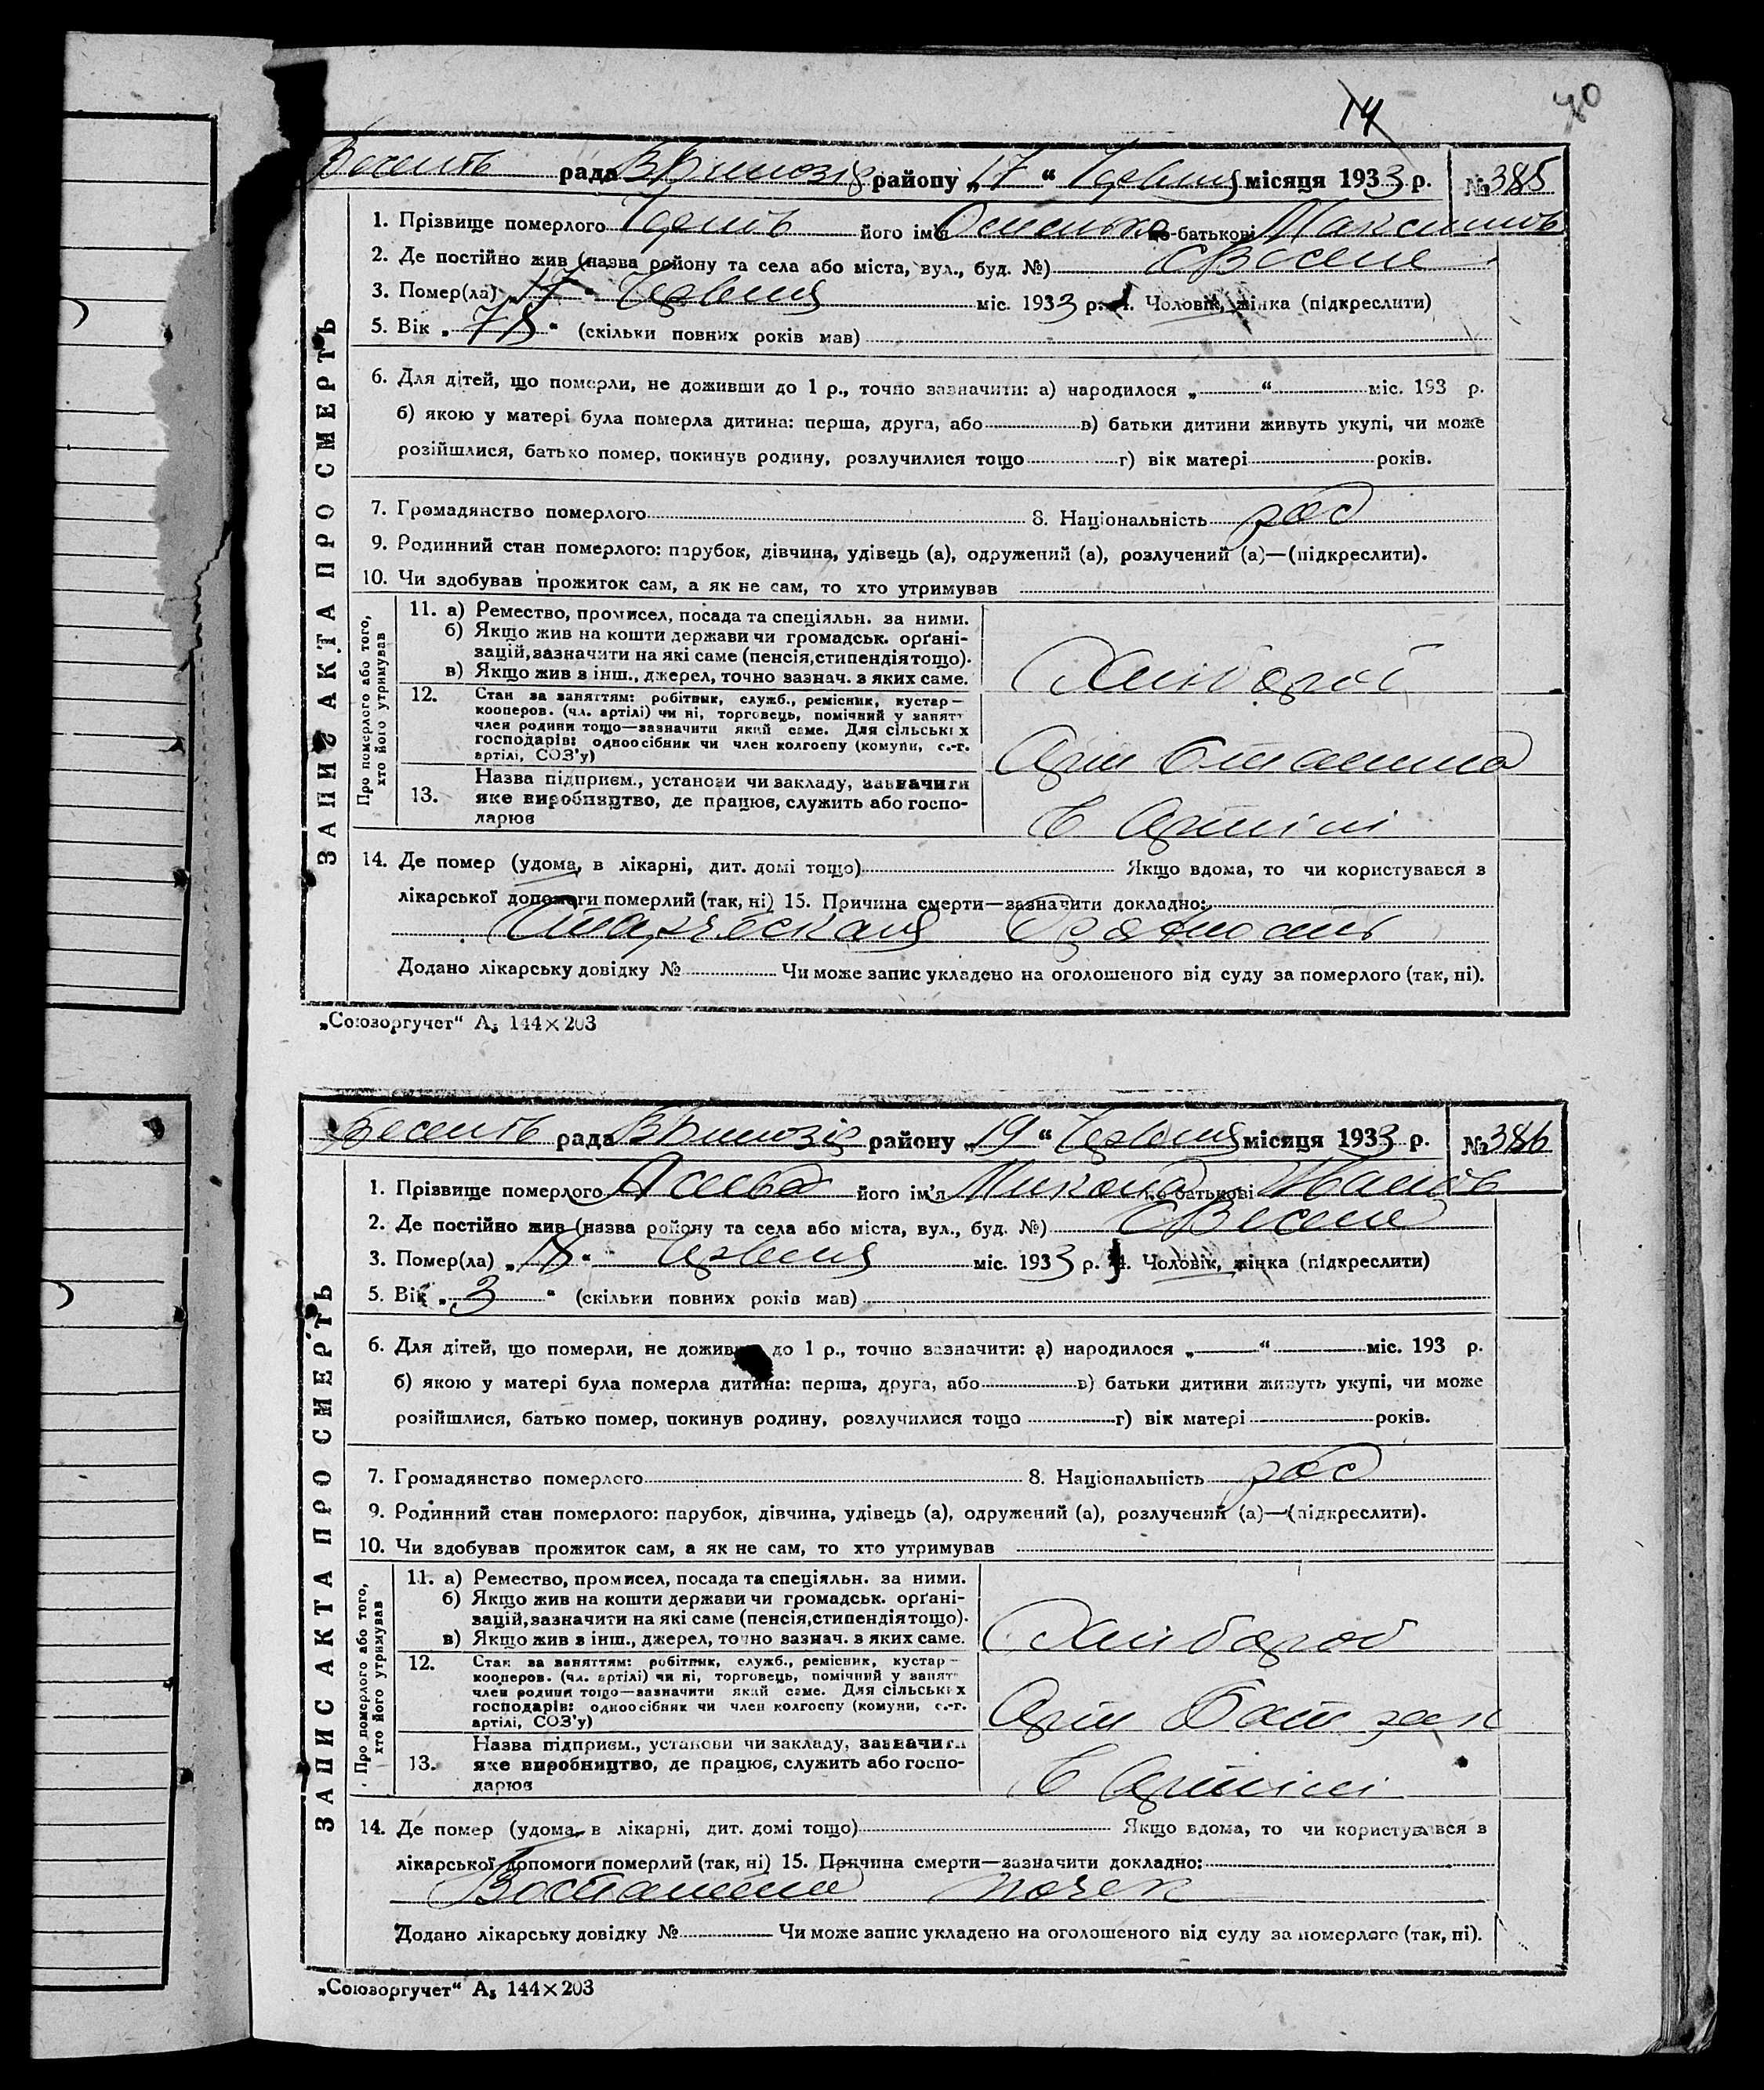 14 40
рада району „17“ Червня місяця 1933 р. №385
1. Прізвище померлого його ім'я по-батькові Максимов
2. Де постійно жив (назва району та села або міста, вул., буд. №) с Веселе
3. Помер(ла) „17“ Червня міс. 1933 р. 4. Чоловік, жінка (підкреслити)
5. Вік „78“ (скільки повних років мав)
6. Для дітей, що померли, не доживши до 1 р., точно зазначити: а) народилося „ “ міс. 193 р.
б) якою у матері була померла дитина: перша, друга, або в) батьки дитини живуть укупі, чи може
розійшлися, батько помер, покинув родину, розлучилися тощо г) вік матері років.
7. Громадянство померлого 8. Національність рос
9. Родинний стан померлого: парубок, дівчина, удівець (а), одружений (а), розлучений (а)—(підкреслити).
10. Чи здобував прожиток сам, а як не сам, то хто утримував
Про померлого або того, хто його утримував
11. а) Ремество, промисел, посада та спеціяльн. за ними.
б) Якщо жив на кошти держави чи громадськ. орґані-
зацій, зазначити на які саме (пенсія, стипендія тощо).
в) Якщо жив з інш., джерел, точно зазнач. з яких саме.
Хлибороб
12. Стан за заняттям: робітник, служб., ремісник, кустар—
кооперов. (чл. артілі) чи ні, торговець, помічний у занятт
член родини тощо—зазначити який саме. Для сільських
господарів: одноосібник чи член колгоспу (комуни, с.-г.
артілі, СОЗ'у)
Арт Сталина
13. Назва підприєм., установи чи закладу, зазначити
яке виробництво, де працює, служить або госпо-
дарює
в Артілі
14. Де помер (удома, в лікарні, дит. домі тощо) Якщо вдома, то чи користувався з
лікарської допомоги померлий (так, ні) 15. Причина смерти—зазначити докладно:
Старческая
Додано лікарську довідку № Чи може запис укладено на оголошеного від суду за померлого (так, ні).
ЗАПИС АКТА ПРО СМЕРТЬ
„Союзоргучет“ А₅ 144×203
рада району „19“ Червня місяця 1933 р. №386
1. Прізвище померлого його ім'я Микола по-батькові Иванов
2. Де постійно жив (назва району та села або міста, вул., буд. №) с Веселе
3. Помер(ла) „18“ Червня міс. 1933 р. 4. Чоловік, жінка (підкреслити)
5. Вік „3“ (скільки повних років мав)
6. Для дітей, що померли, не доживши до 1 р., точно зазначити: а) народилося „ “ міс. 193 р.
б) якою у матері була померла дитина: перша, друга, або в) батьки дитини живуть укупі, чи може
розійшлися, батько помер, покинув родину, розлучилися тощо г) вік матері років.
7. Громадянство померлого 8. Національність рос
9. Родинний стан померлого: парубок, дівчина, удівець (а), одружений (а), розлучений (а)—(підкреслити).
10. Чи здобував прожиток сам, а як не сам, то хто утримував
Про померлого або того, хто його утримував
11. а) Ремество, промисел, посада та спеціяльн. за ними.
б) Якщо жив на кошти держави чи громадськ. орґані-
зацій, зазначити на які саме (пенсія, стипендія тощо).
в) Якщо жив з інш., джерел, точно зазнач. з яких саме.
Хлибороб
12. Стан за заняттям: робітник, служб., ремісник, кустар—
кооперов. (чл. артілі) чи ні, торговець, помічний у занятт
член родини тощо—зазначити який саме. Для сільських
господарів: одноосібник чи член колгоспу (комуни, с.-г.
артілі, СОЗ'у)
Арт Батрак
13. Назва підприєм., установи чи закладу, зазначити
яке виробництво, де працює, служить або госпо-
дарює
в Артілі
14. Де помер (удома, в лікарні, дит. домі тощо) Якщо вдома, то чи користувався з
лікарської допомоги померлий (так, ні) 15. Причина смерти—зазначити докладно:
почек
Додано лікарську довідку № Чи може запис укладено на оголошеного від суду за померлого (так, ні).
ЗАПИС АКТА ПРО СМЕРТЬ
„Союзоргучет“ А₅ 144×203